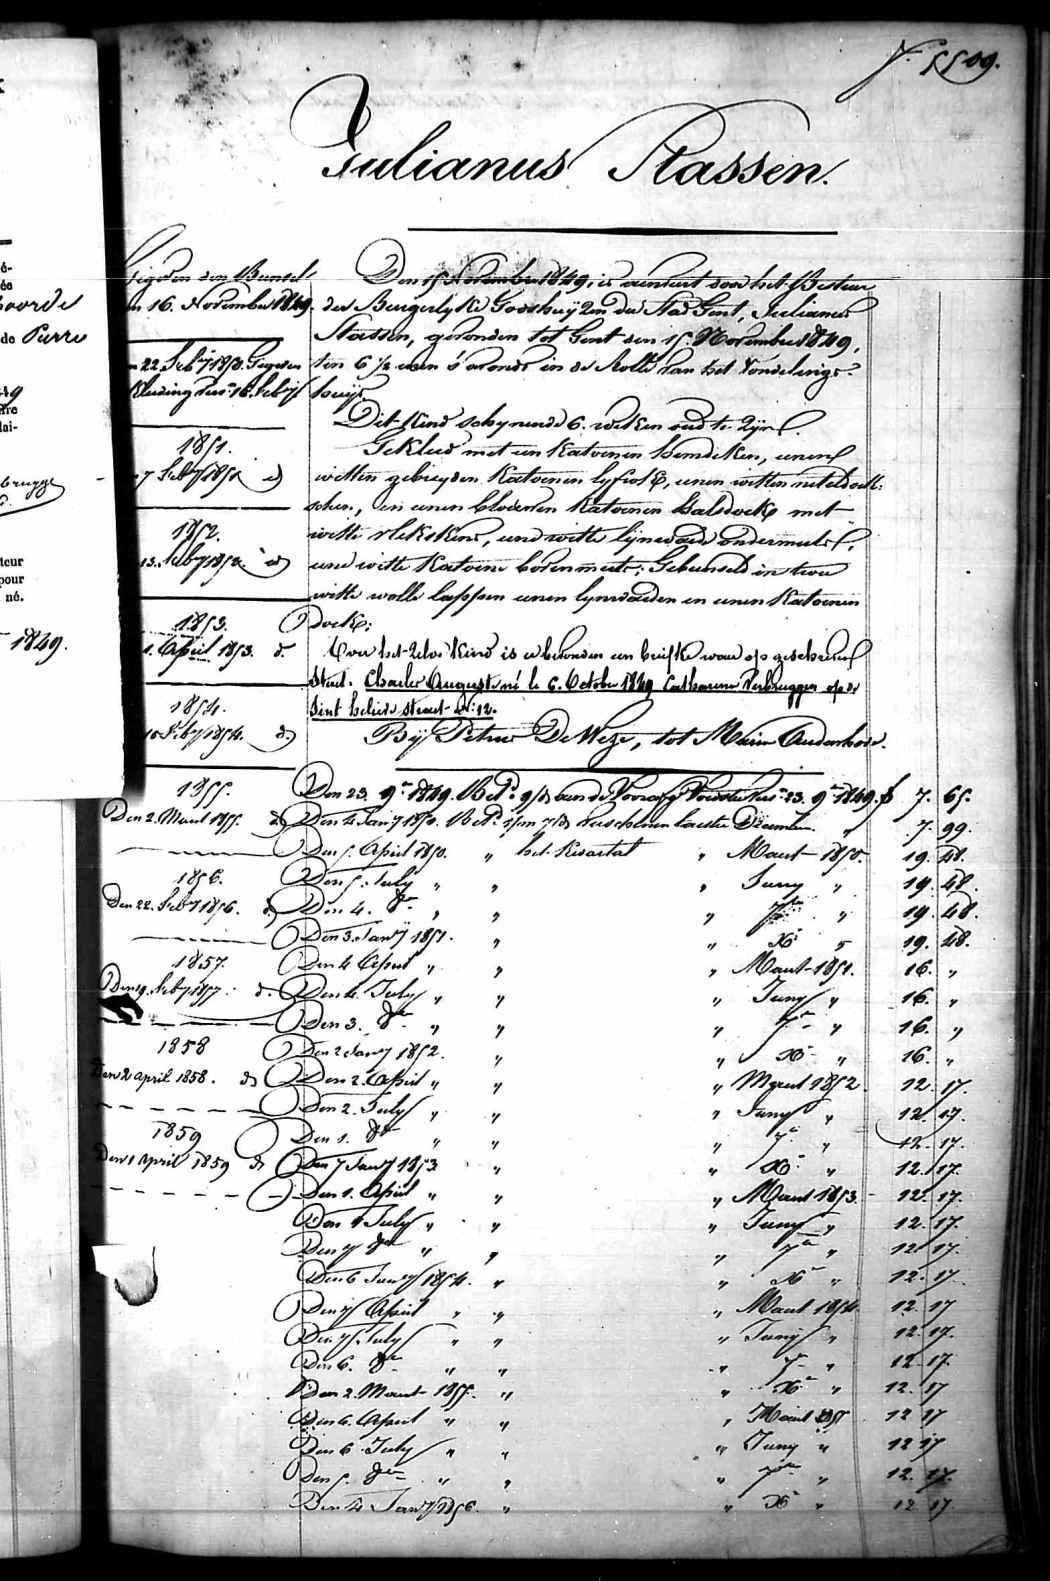 f. 5509.
Julianus Stassen.
Den 15 November 1849, is aenveert door het Bestuer
der Burgerlyke Godshuyzen der Stad Gent, Julianus
Stassen, gevonden tot Gent den 15. November 1849,
ten 6 1/2 uren s'avonds in de Rolle van het Vondelinge-
huys.
Dit Kind schynende 6. weken oud te zyn.
Gekleed met een Katoenen hemdeken, eenen
witten gebreyden Katoenen lyfrok, eenen witten neteldoek-
schen, en eenen blooten Katoenen halsdoek met
witte vlekskens, eene witte lynwaede ondermuts,
eene witte Katoene bovenmuts; Gebunseld in twee
witte wolle lappen eenen lynwaeden en eenen Katoenen
doek:
Over het zelve Kind is er bevonden een briefke waer op geschreven
staet. Charles Auguste né le 6. Octobre 1849 Catharina Verbruggen op de
Sint Lelivie straet N: 12.
By Petrus De Weze, tot Maria Audenhove.
November 1849.
22. Feb.y 1850. Gegeven
Kleeding
1851.
7 Feb.y 1851 d.
1852.
13. Feb.y 1852. d.
1853.
1. April 1853. d.
1854.
10 Feb.y 1854. d.
1855.
Den 2. Maert 1855. d.
1856.
Den 22. Feb.y 1856. d.
1857.
Den 19. Feb.y 1857. d.
1858
Den 2 april 1858. d.
1859
Den 1 April 1859 d.
Den 23. 9.re 1849. Bet.d 23. 9.re 1849. f 7. 65.
Den 4 Jan.y 1850. Bet.d Décember 7. 99.
Den 5. April 1850. " het Kwartal " Maert 1850. 19. 48.
Den 5. July " " " Juny " 19. 48.
Den 4. 8.re " " " 7.re " 19. 48.
Den 3. Jan.y 1851. " " X.re " 19. 48.
Den 4 April " " " Maert 1851. 16. "
Den 4. July " " " Juny " 16. "
Den 3. 8.re " " " 7.re " 16. "
Den 2 Jan.y 1852. " " X.re " 16. "
Den 2. April " " " Maert 1852 12. 17.
Den 2. July " " " Juny " 12. 17.
Den 1. 8.re " " " 7.re " 12. 17.
Den 7 Jan.y 1853 " " X.re " 12. 17.
Den 1. April " " " Maert 1853. 12. 17.
Den 1 July " " " Juny " 12. 17.
Den 7 8.re " " " 7.re " 12. 17.
Den 6 Jan.y 1854. " " X.re " 12. 17.
Den 7 April " " " Maert 1854. 12. 17
Den 7. July " " " Juny " 12. 17.
Den 6. 8.re " " " 7.re " 12. 17.
Den 2. Maert 1855. " " X.re " 12. 17
Den 6. April " " " Maert 1855 12 17
Den 6 July " " " Juny " 12 17
Den 5. 8.re " " " 7.re " 12. 17.
Den 4 Jan.y 1856. " " X.re " 12 17.
de Pierre
teur
pour
né.
1849.